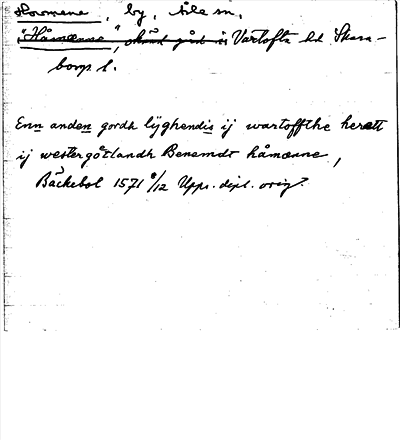 Hovmene, by, Lile sn,
"Håmænne", okänd gård i Vartofta hd Skara-
borgs l.
Enn anden gordh lÿghendis ij wartoffthe herett
ij westergötlandh Benemdt håmænne,
Bäckebol 1571 8/12 Upps. dipl. orig.